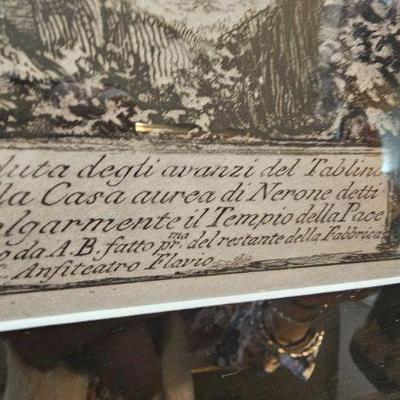 duta degli avanzi del Tablino
la Casa aurea di Nerone detti
olgarmente il Tempio della Pace
o da A.B. fatto pr.ma del restante della Fabbrica
Anfiteatro Flavio